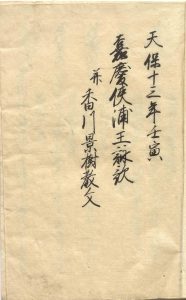 天保十三年壬寅
嘉慶侯浦王詠歌
并香川景樹教文